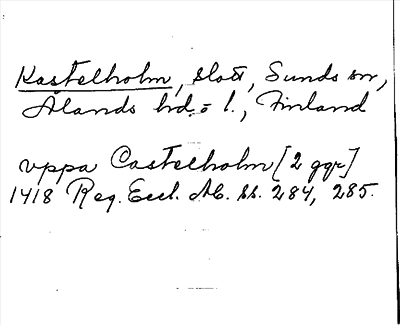 Kastelholm, slott, Sunds sn,
Ålands hd o l., Finland
vppa Castelholm [2 ggr]
1418 Reg. Eccl. Ab. ss. 284, 285.